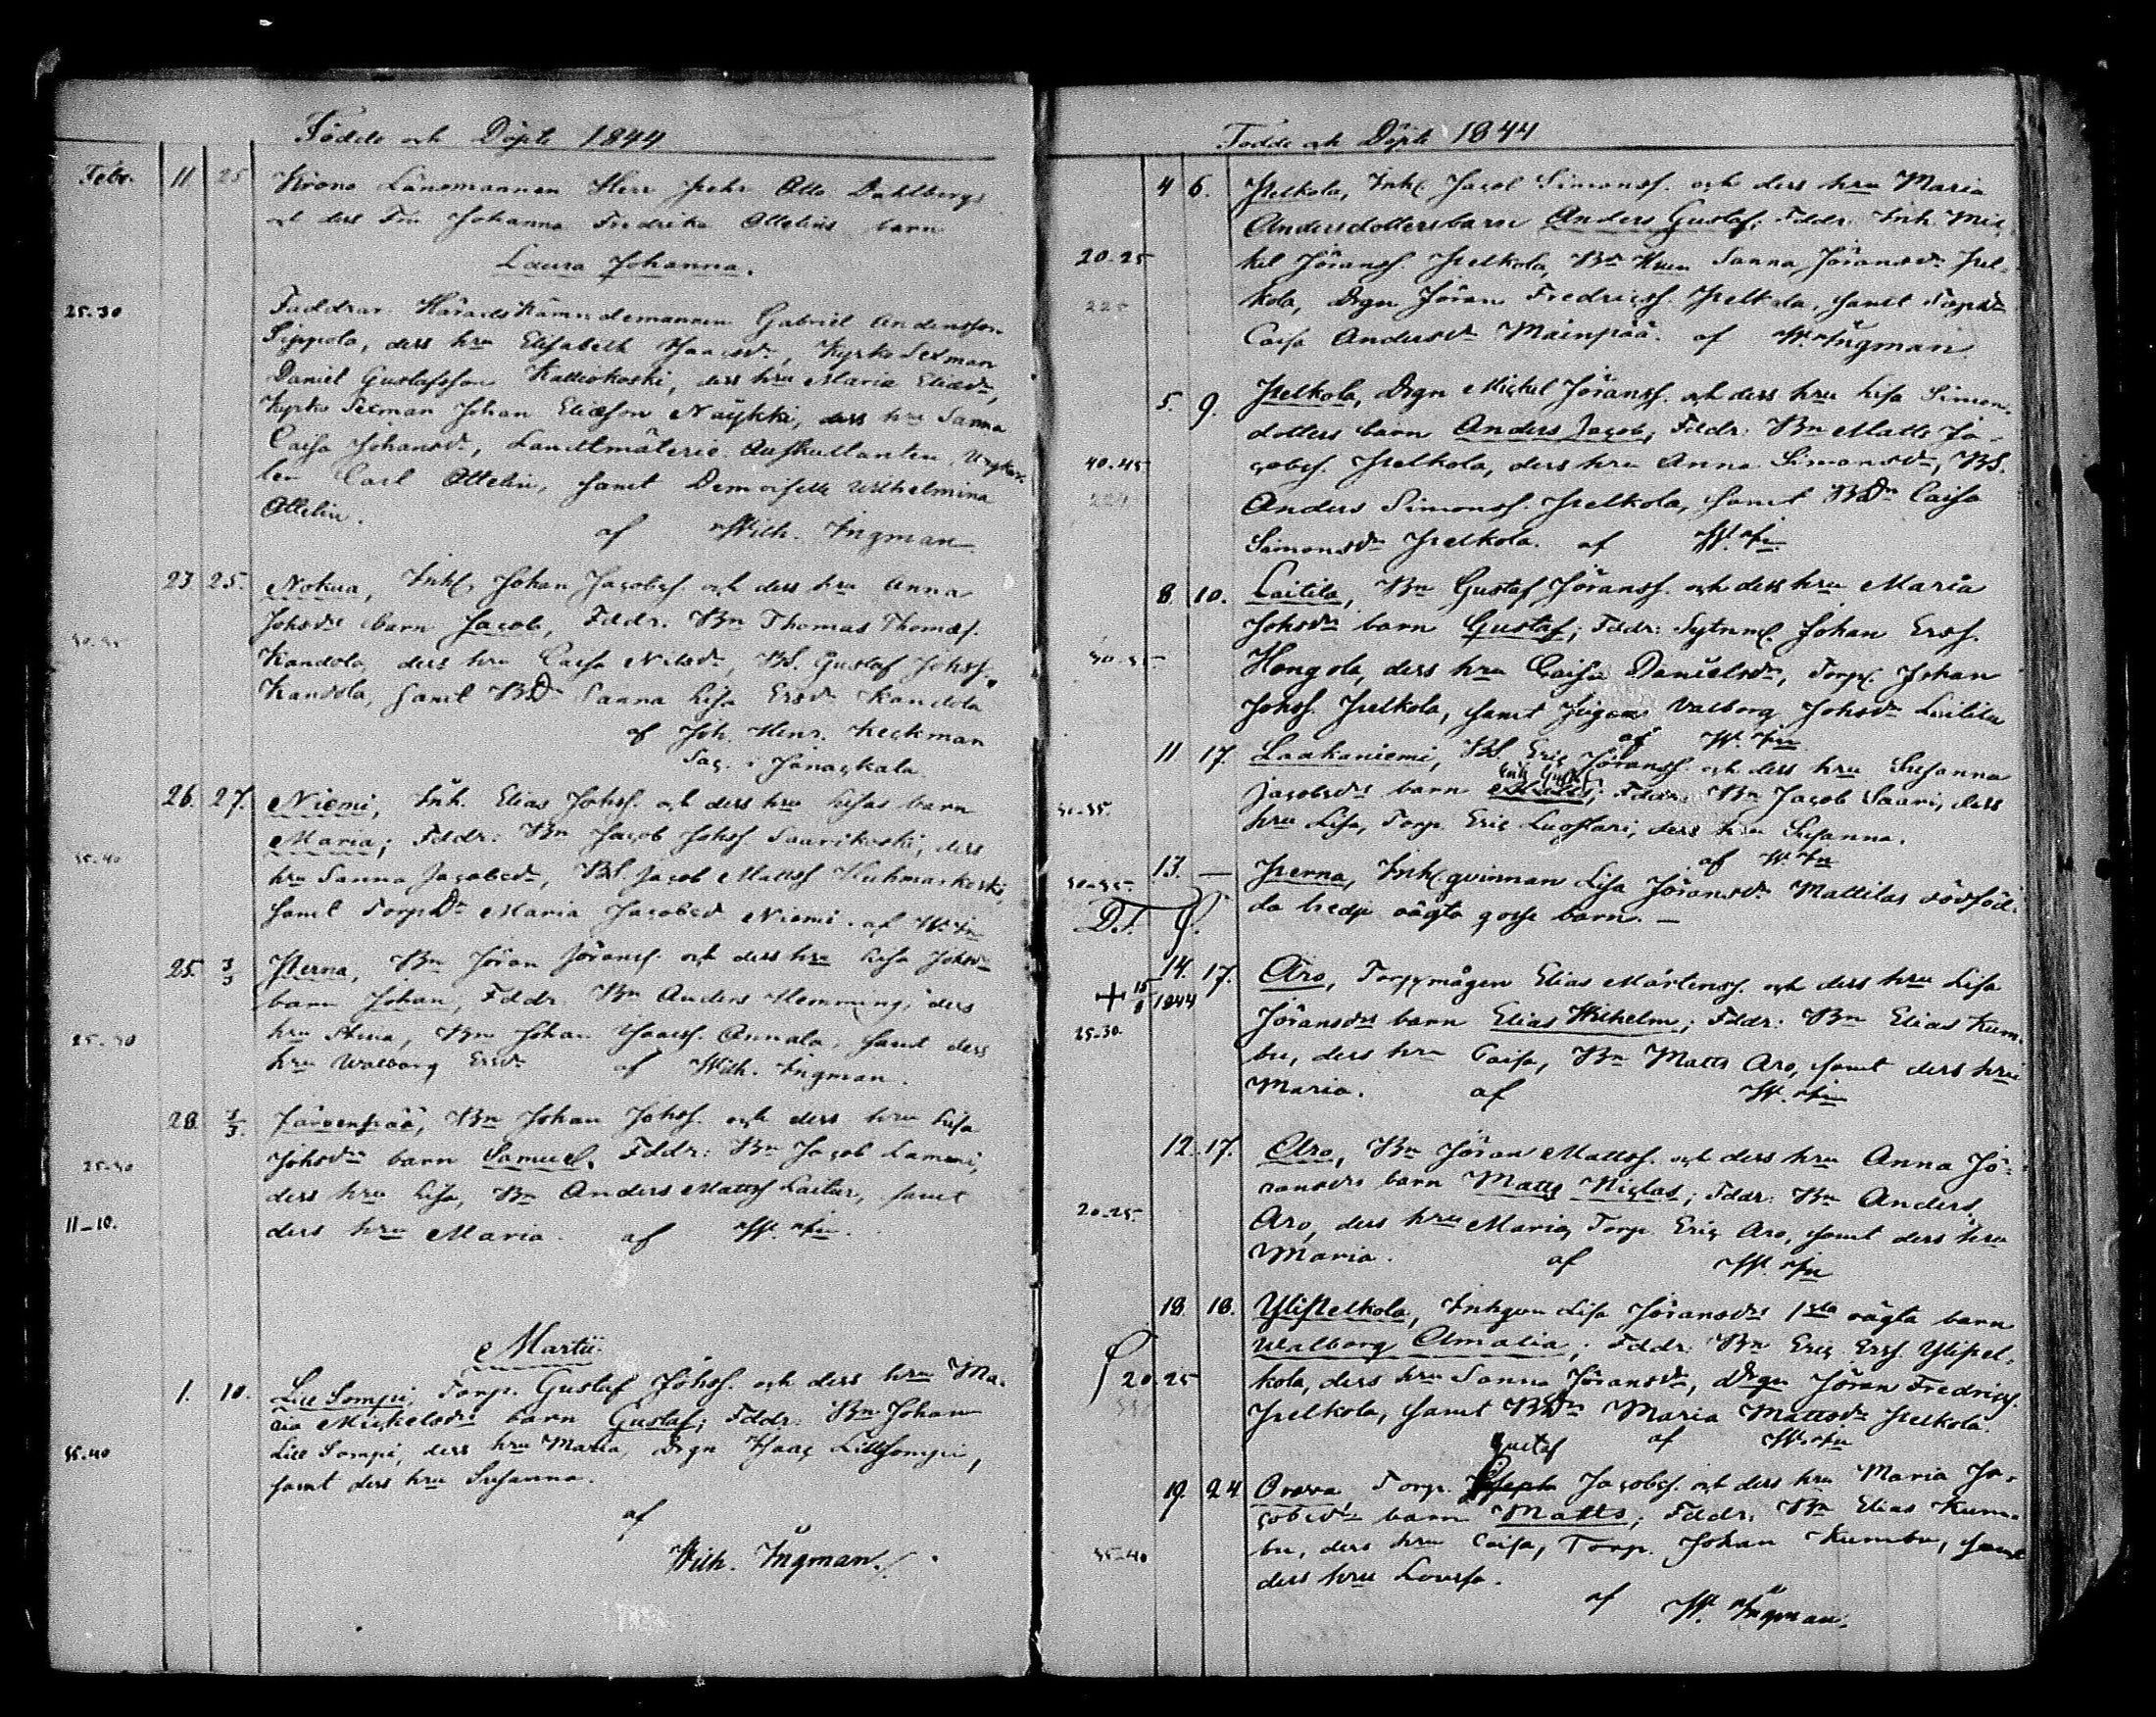 Födde och Döpte 1844
Febr. 11 25 Krono Länsmannen Herr Pehr Otto Dahlbergs
och dess Fru Johanna Fredrika Ottelins barn
Laura Johanna.
25-30 Faddrar Härads Nämndemannen Gabriel Andersson
Sippola, dess hru Elisabeth Isaacsdr, Kyrko Sexman
Daniel Gustafsson Kalliokoski, dess hru Maria Eliædr,
Kyrko Sexman Johan Eliæson Näykki, dess hru Sanna
Caisa Johansdr, Landtmäterie Auskultanten, Ungkar-
len Carl Ottelin, samt Demoiselle Wilhelmina
Ottelin.
af Wilh. Ingman
23 25. Nokua, Inh. Johan Jacobss. och dess hru Anna
Johsdrs barn Jacob, Fddr. Bn Thomas Thomæs.
Kandola, dess hru Caisa Nilsdr, BS. Gustaf Johss.
Kandola, samt BDn Sanna Lisa Ersdr Kandola
af Joh. Henr. Keckman
Sac. i Janackala
26. 27. Niemi, Inh. Elias Johss. och dess hru Lisas barn
35.40 Maria; Fddr: Bn Jacob Johss Saarikoski, dess
hru Sanna Jacobsdr, BS. Jacob Mattss Kuhmarkoski,
samt Torp.Dr Maria Jacobsdr Niemi. af W. In
25. 3/3 Perna, Bn Jöran Jöranss. och dess hru Lisa Johsdrs
barn Johan, Fddr. Bn Anders Hemming, dess
25-30 hru Anna, Bn Johan Isaacs. Annala, samt dess
hru Walborg Ersdr af Wilh. Ingman.
28. 3/3. Järvenpää, Bn Johan Johss. och dess hru Lisa
25-30 Johsdrs barn Samuel. Fddr: Bn Jacob Lammi,
dess hru Lisa, Bn Anders Mattss Laitur, samt
11-10. dess hru Maria. af W. In.
Martii
1. 10. Lill Sompi, Torp. Gustaf Johss. och dess hru Ma-
ria Michelsdrs barn Gustaf; Fddr: Bn Johan
35.40 Lill Sompi, dess hru Maria, Drgn Isaac Lillsompi,
samt dess hru Susanna.
af
Wilh. Ingman.
Födde och Döpte 1844
4 6. Pelkola, Inh. Jacob Simonss. och dess hru Maria
Andersdotters barn Anders Gustaf; Fddr: Inh. Mic-
20-25 kel Jöranss. Pelkola, Bn Kun Sanna Jöransdr Pel-
225 kola, Drgn Jöran Fredricss. Pelkola, samt Torpdr
Caisa Andersdr Mäinpää. af W. Ingman.
5. 9 Pelkola, Drgn Mickel Jöranss. och dess hru Lisa Simons-
dotters barn Anders Jacob; Fddr: Bn Matts Ja-
40-45 cobss. Pelkola, dess hru Anna Simonsdr, BS.
224 Anders Simonss. Pelkola, samt BDn Caisa
Simonsdr Pelkola. af W. In.
8. 10. Laitila, Bn Gustaf Jöranss. och dess hru Maria
Johsdrs barn Gustaf; Fddr: Sytnm. Johan Erss.
Hongola, dess hru Caisa Danielsdr, Torp. Johan
Johss. Pelkola, samt Pigan Valborg Johsdr Laitila
af W. In
11 17. Laakaniemi, BS. Eric Jöranss. och dess hru Susanna
Eric Gustaf
50-55. Jacobsdrs barn Matts; Fddr: Bn Jacob Saari, dess
hru Lisa, Torp. Eric Luostari, dess hru Susanna.
af W. In
13. — Perna, Inh.qvinnan Lisa Jöransdr Mattilas dödföd-
30-35. da tredje oägta gosse barn. —
D.f.
14. 17. Aro, Torp.mågen Elias Mårtenss. och dess hru Lisa
+ 15/8 1844
25-30 Jöransdrs barn Elias Wilhelm; Fddr: Bn Elias Kum-
bu, dess hru Caisa, Bn Matts Aro, samt dess hru
Maria. af W. In
12. 17. Aro, Bn Jöran Mattss. och dess hru Anna Jö-
ransdrs barn Matts Niclas; Fddr: Bn Anders
20-25. Aro, dess hru Maria, Torp. Eric Aro, samt dess hru
Maria. af W. In
18. 18. Ylipelkola, Inhqvn Lisa Jöransdrs 1sta oägta barn
Walborg Amalia; Fddr: Bn Eric Erss. Ylipel-
20-25 kola, dess hru Sanna Jöransdr, Drgn Jöran Fredricss.
Pelkola, samt BDn Maria Mattsdr Pelkola.
af W. In
Gustaf
19. 24 Orava Torp. Joseph Jacobss. och dess hru Maria Ja-
cobsdrs barn Matts; Fddr: Bn Elias Kum-
35-40 bu, dess hru Caisa, Torp. Johan Kumbu, samt
dess hru Lovisa.
af W. Ingman.